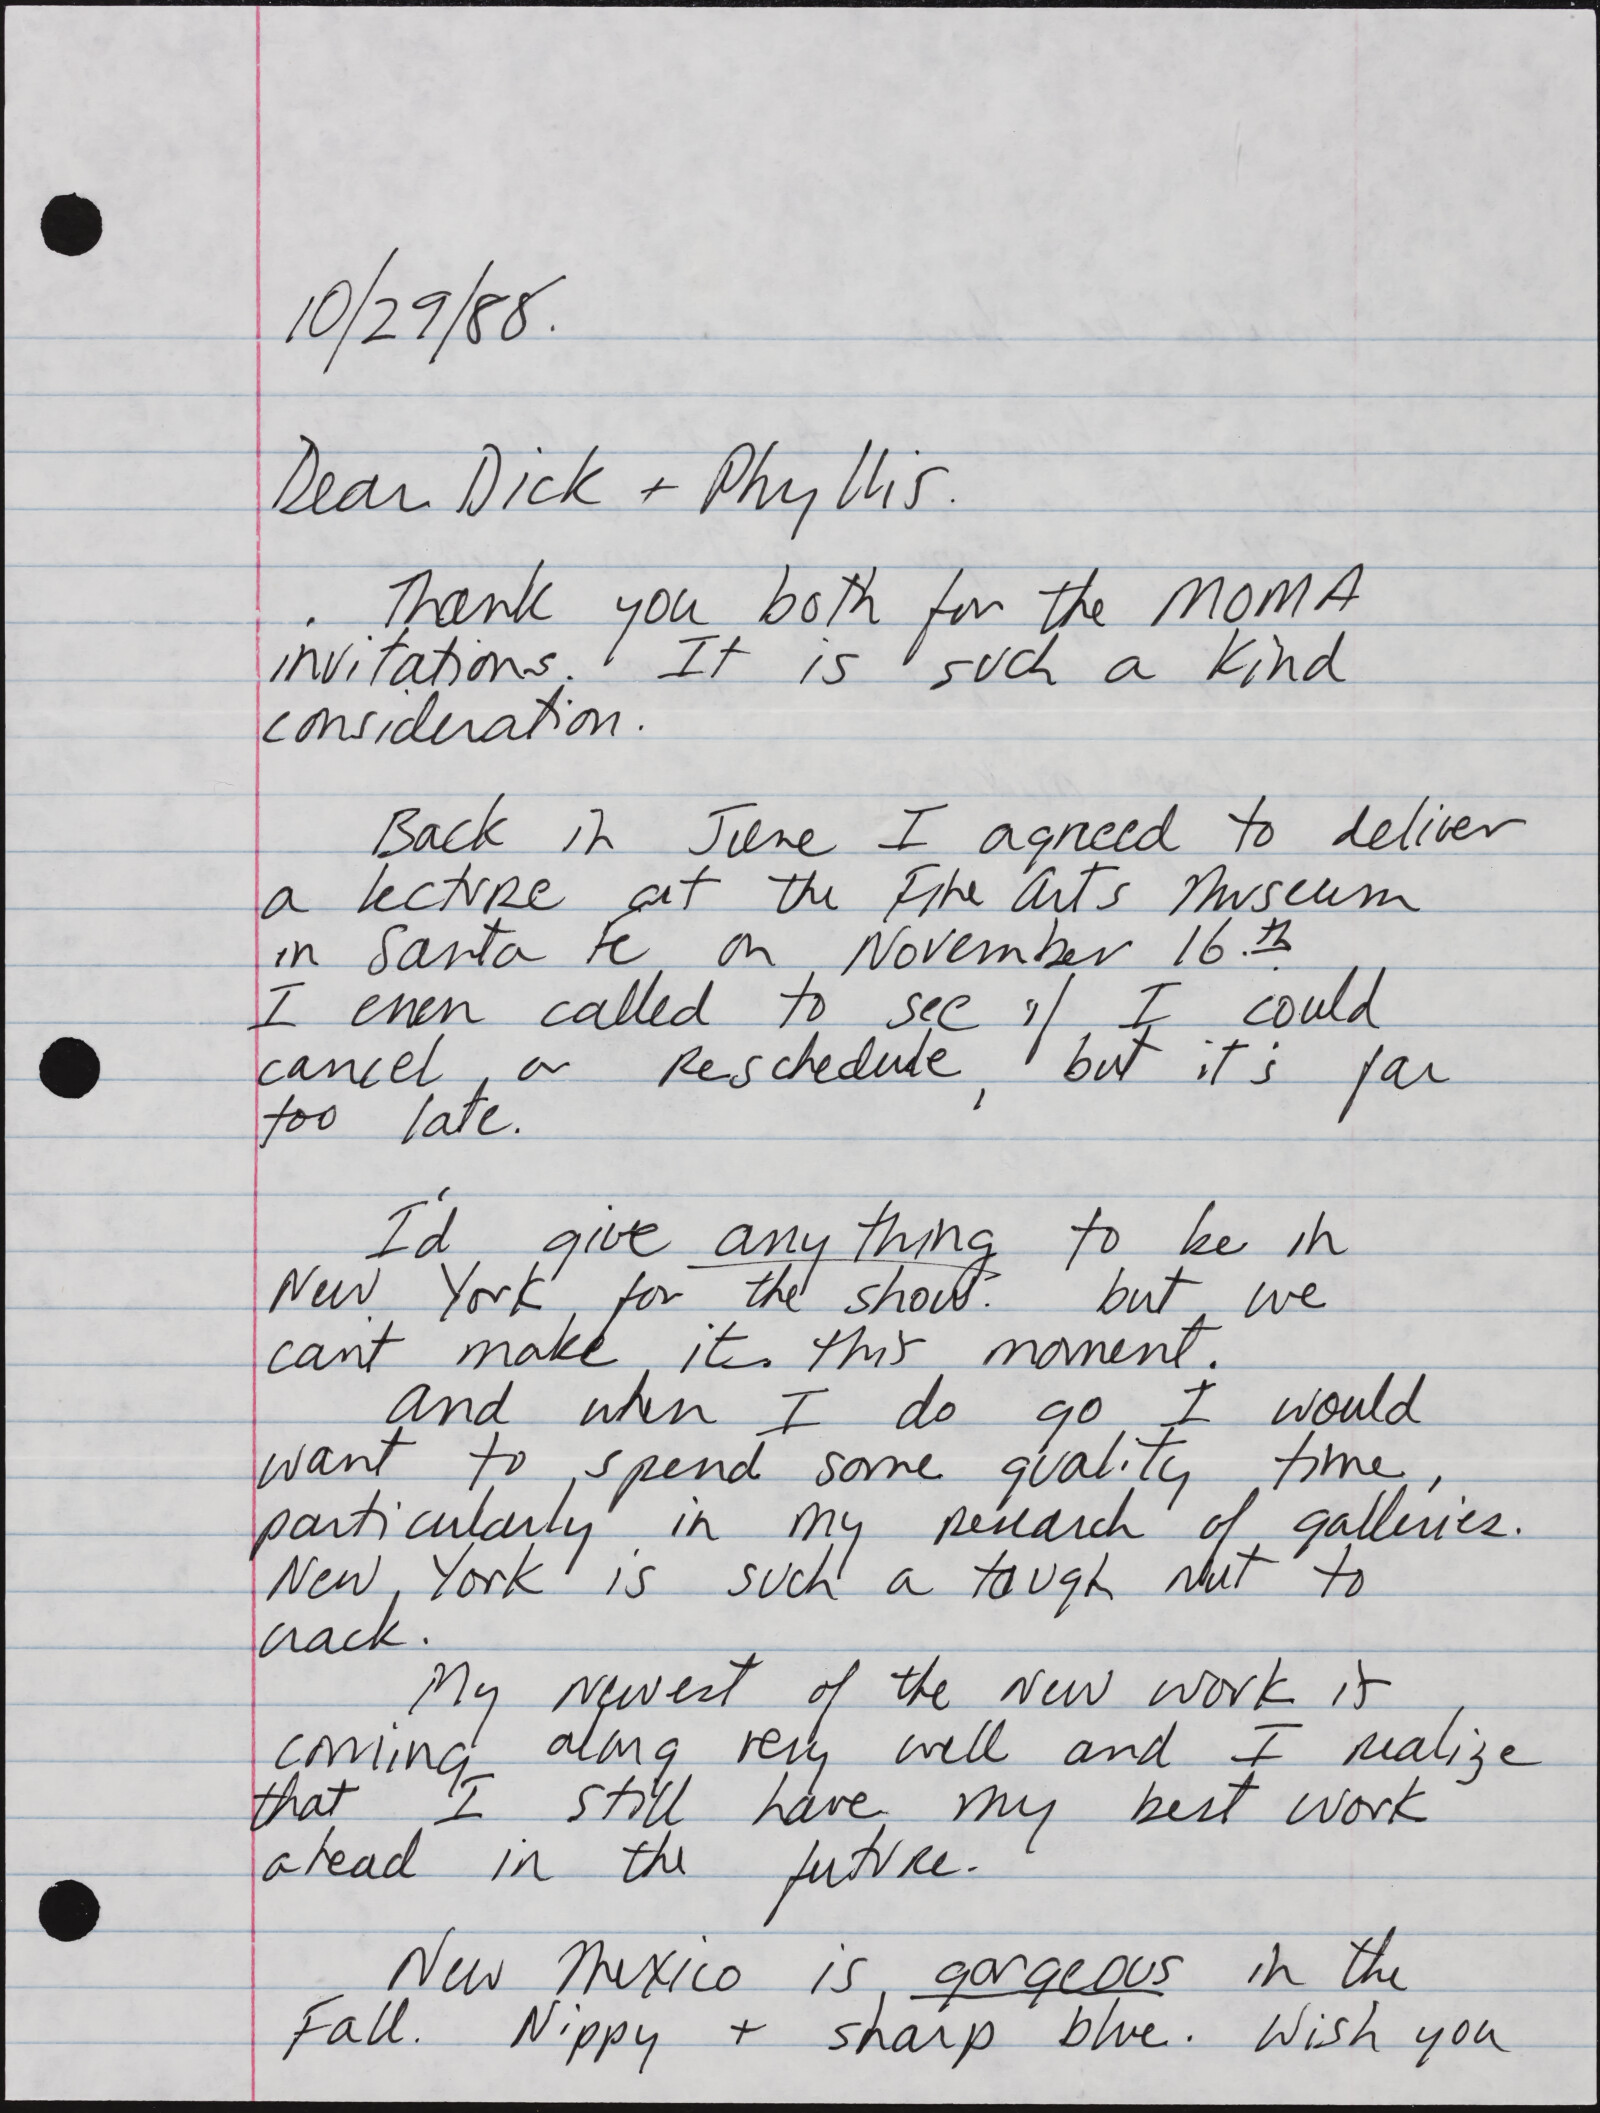 10/29/88.
Dear Dick + Phyllis.
. Thank you both for the MOMA
invitations. It is such a kind
consideration.
Back in June I agreed to deliver
a lecture at the Fine Arts Museum
in Santa Fe on November 16.th
I even called to see if I could
cancel or reschedule, but it's far
too late.
I'd give anything to be in
New York for the show. but we
cant make it. this moment.
And when I do go I would
want to spend some quality time,
particularly in my research of galleries.
New York is such a tough nut to
crack.
My newest of the new work is
coming along very well and I realize
that I still have my best work
ahead in the future.
New Mexico is gorgeous in the
Fall. Nippy + sharp blue. Wish you